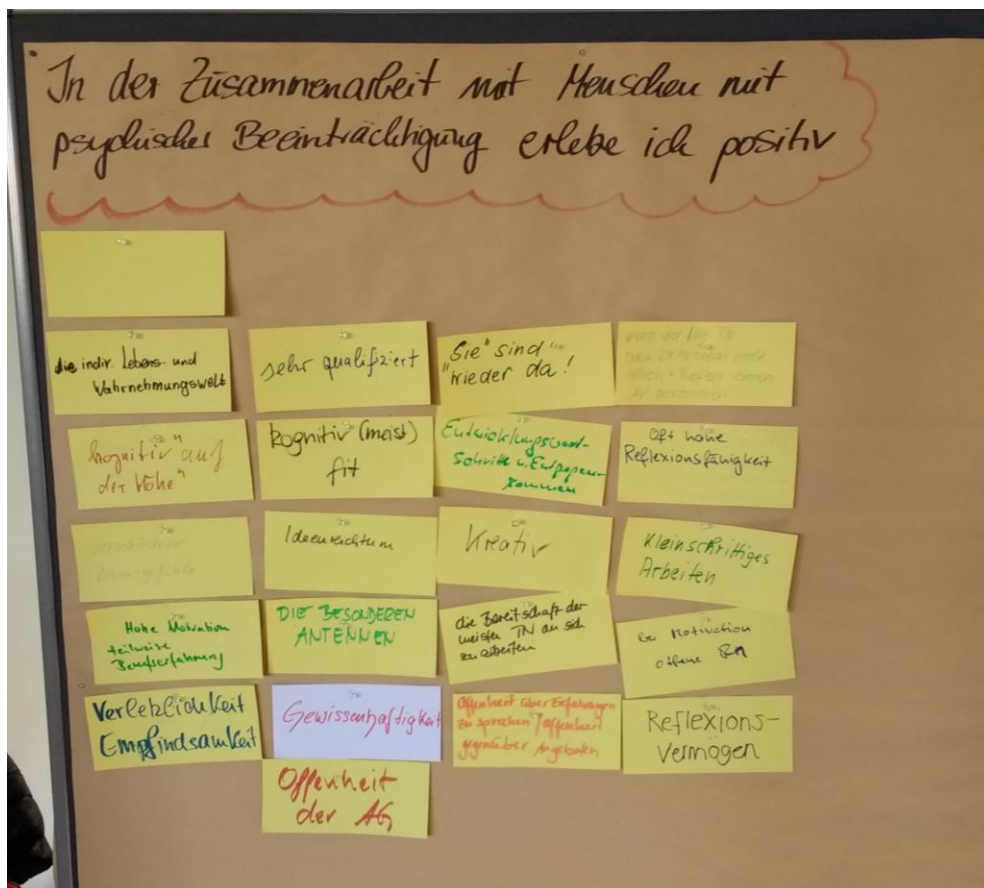 In der Zusammenarbeit mit Menschen mit
psychischer Beeinträchtigung erlebe ich positiv
die indiv. Lebens- und
Wahrnehmungswelt
sehr qualifiziert
"Sie" sind
wieder da!
wenn der/die TN
einen
AV bekommen
kognitiv "auf
der Höhe"
kognitiv (meist)
fit
Schritte u. Entgegen-
kommen
Oft hohe
Reflexionsfähigkeit
verschiedene
Ideenreichtum
Kreativ
Kleinschrittiges
Arbeiten
Hohe Motivation
teilweise
Berufserfahrung
DIE BESONDEREN
ANTENNEN
die Bereitschaft der
meisten TN an sich
zu arbeiten
bei Motivation
offene
Verletzlichkeit
Empfindsamkeit
Gewissenhaftigkeit
Offenheit über Erfahrungen
zu sprechen / Offenheit
gegenüber Angeboten
Reflexions-
vermögen
Offenheit
der AG